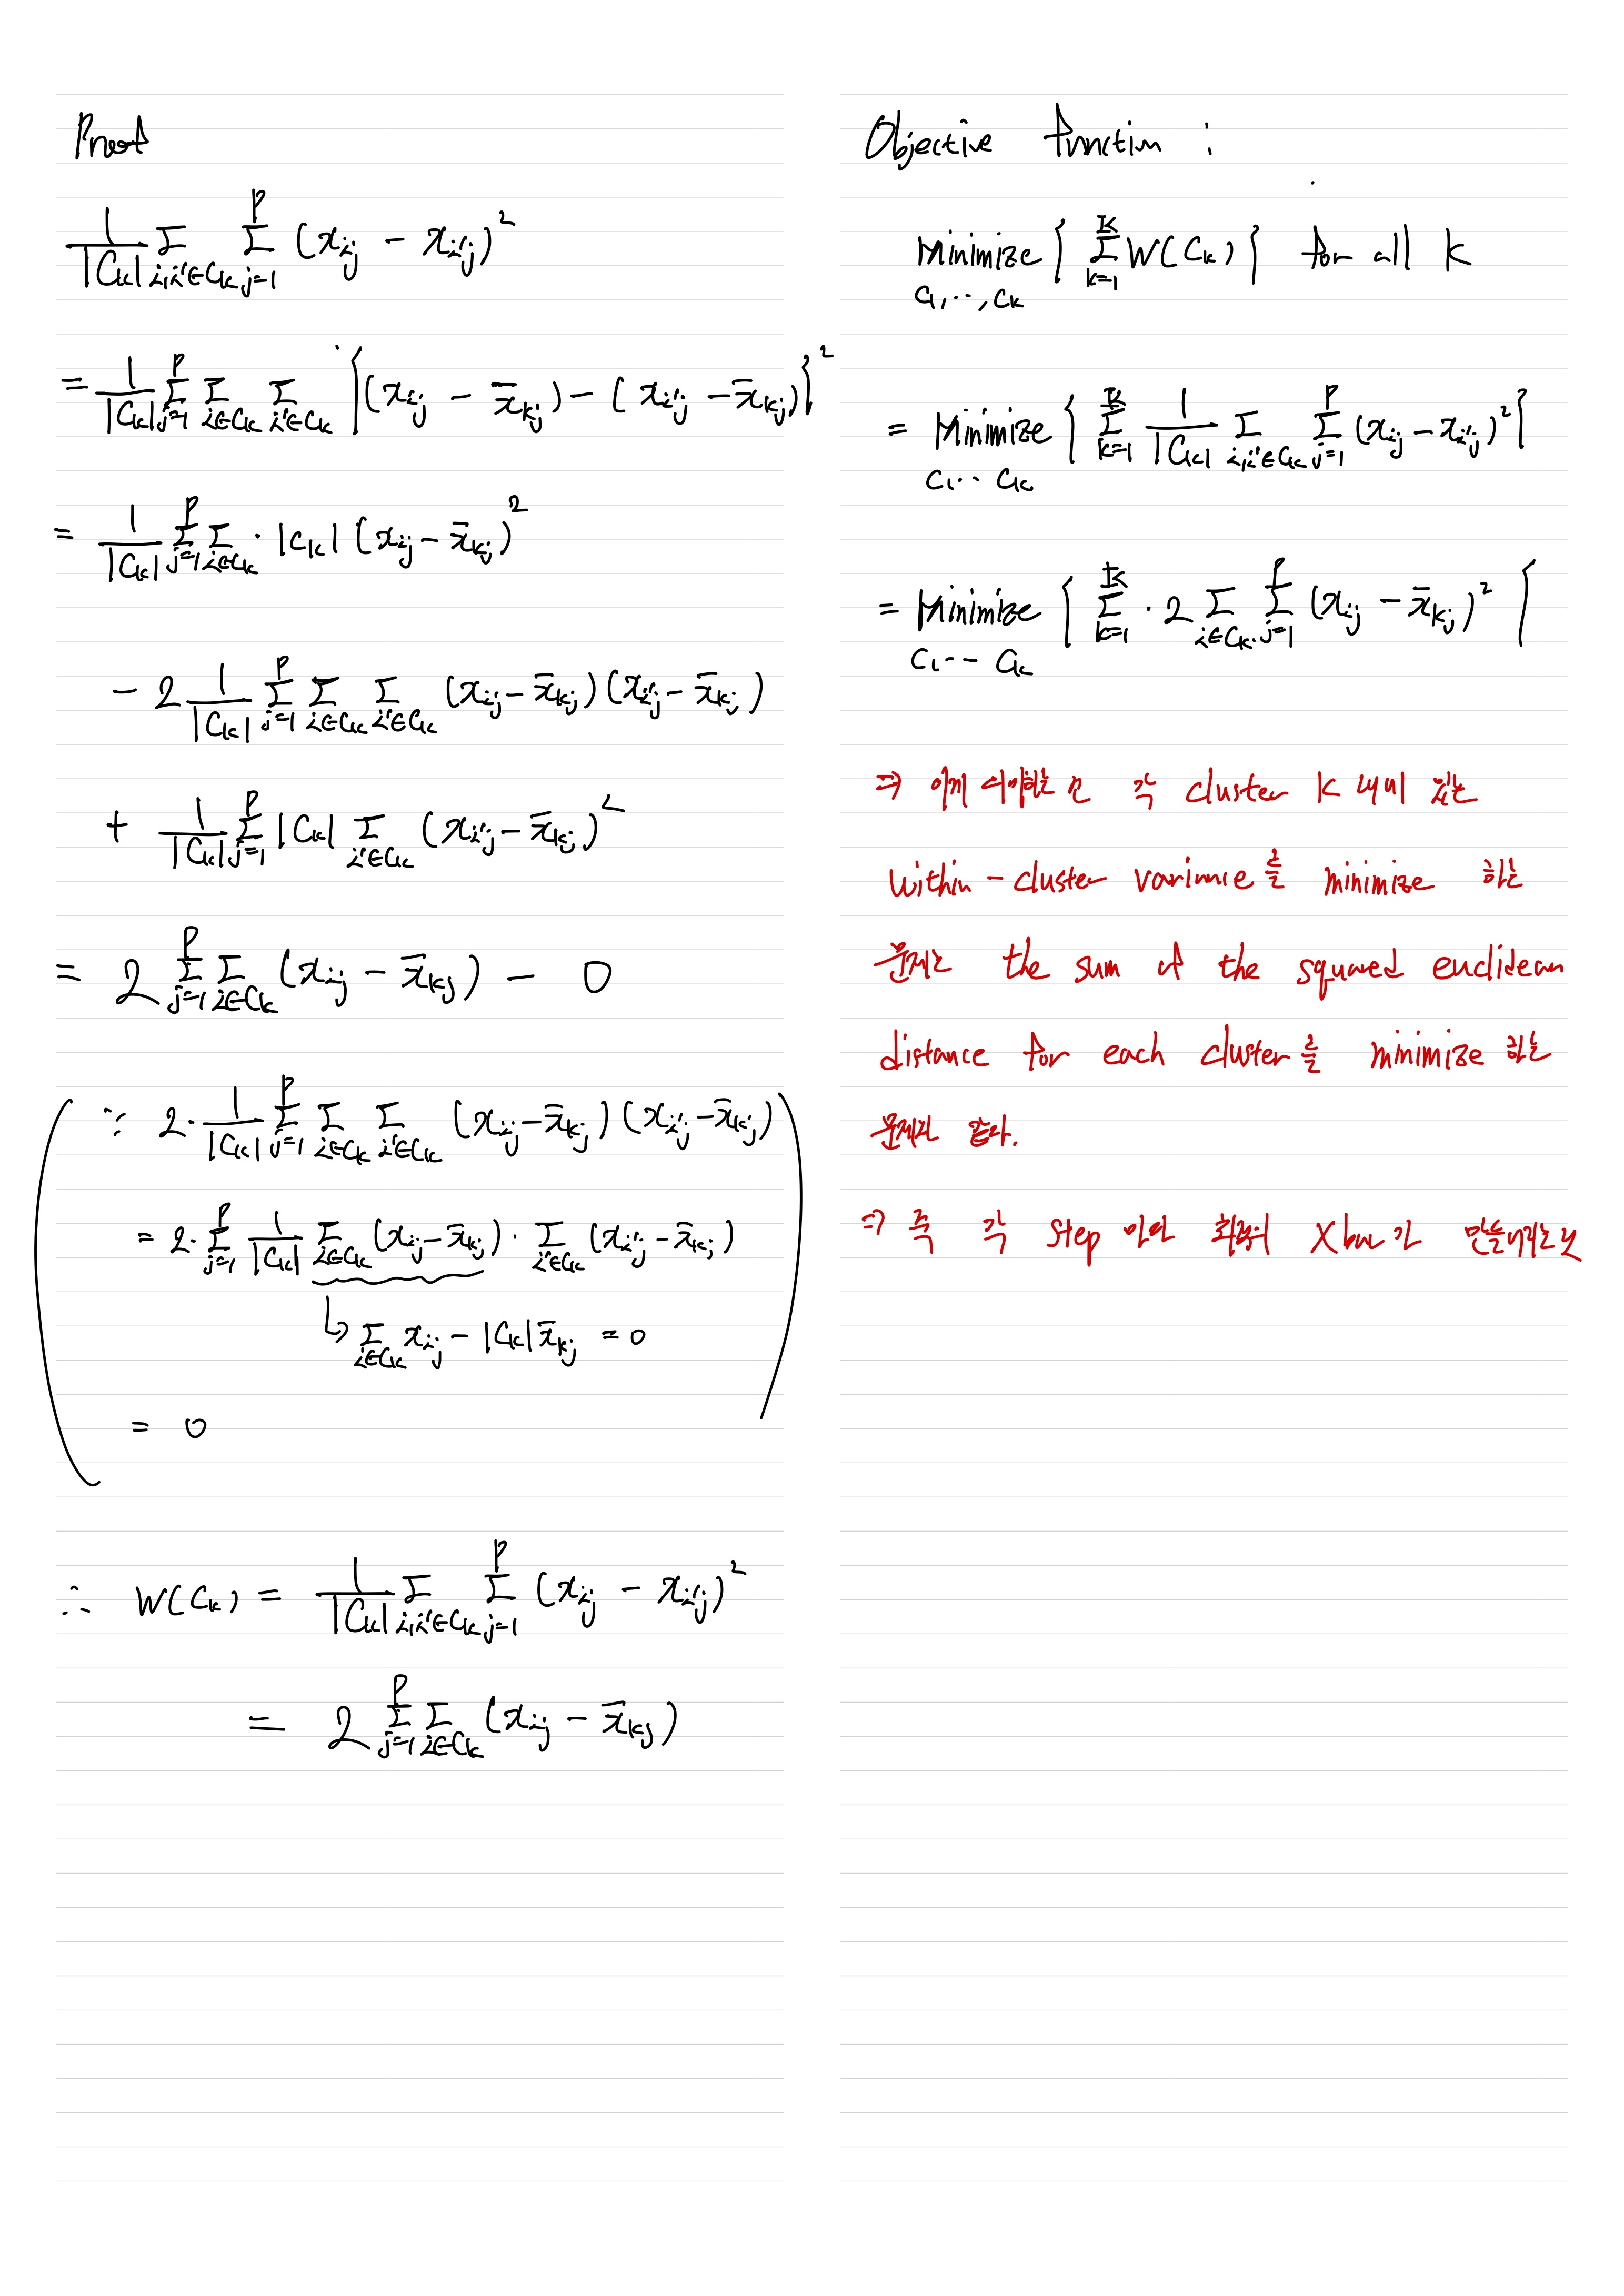 Proof
1/|Ck| Σ_{i,i'∈Ck} Σ_{j=1}^{p} (x_{ij} - x_{i'j})²
= 1/|Ck| Σ_{j=1}^{p} Σ_{i∈Ck} Σ_{i'∈Ck} {(x_{ij} - x̄_{kj}) - (x_{i'j} - x̄_{kj})}²
= 1/|Ck| Σ_{j=1}^{p} Σ_{i∈Ck} · |Ck| (x_{ij} - x̄_{kj})²
- 2 1/|Ck| Σ_{j=1}^{p} Σ_{i∈Ck} Σ_{i'∈Ck} (x_{ij} - x̄_{kj})(x_{i'j} - x̄_{kj})
+ 1/|Ck| Σ_{j=1}^{p} |Ck| Σ_{i'∈Ck} (x_{i'j} - x̄_{kj})²
= 2 Σ_{j=1}^{p} Σ_{i∈Ck} (x_{ij} - x̄_{kj}) - 0
(∵ 2· 1/|Ck| Σ_{j=1}^{p} Σ_{i∈Ck} Σ_{i'∈Ck} (x_{ij} - x̄_{kj})(x_{i'j} - x̄_{kj})
= 2· Σ_{j=1}^{p} 1/|Ck| Σ_{i∈Ck} (x_{ij} - x̄_{kj}) · Σ_{i'∈Ck} (x_{i'j} - x̄_{kj})
↳ Σ_{i∈Ck} x_{ij} - |Ck| x̄_{kj} = 0
= 0)
∴ W(Ck) = 1/|Ck| Σ_{i,i'∈Ck} Σ_{j=1}^{p} (x_{ij} - x_{i'j})²
= 2 Σ_{j=1}^{p} Σ_{i∈Ck} (x_{ij} - x̄_{kj})
Objective function :
Minimize_{C1,··,Ck} { Σ_{k=1}^{K} W(Ck) } for all k
= Minimize_{C1·· Ck} { Σ_{k=1}^{K} 1/|Ck| Σ_{i,i'∈Ck} Σ_{j=1}^{p} (x_{ij} - x_{i'j})² }
= Minimize_{C1·-· Ck} { Σ_{k=1}^{K} · 2 Σ_{i∈Ck} Σ_{j=1}^{p} (x_{ij} - x̄_{kj})² }
⇒ 각 cluster k 내에 있는
within-cluster variance를 minimize 하는
문제는 the sum of the squared euclidean
distance for each cluster를 minimize 하는
문제와 같다.
⇒ 즉 각 step 마다 Xbar가